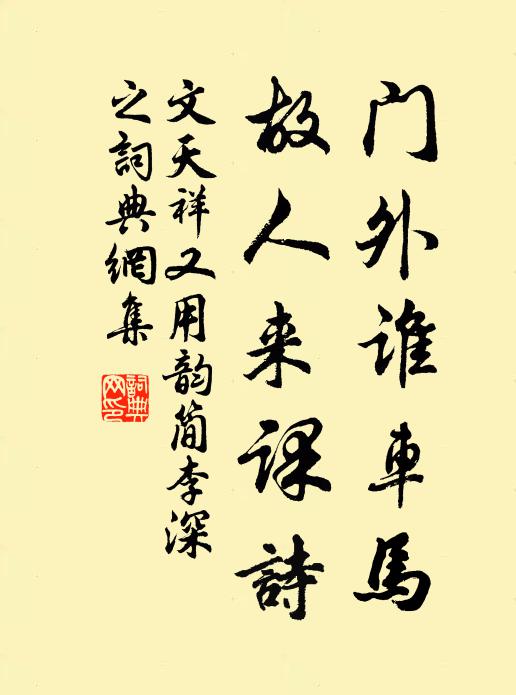 門外誰車馬
故人来課詩
文天祥又用韵簡李深
之詞典網集
詞典網印